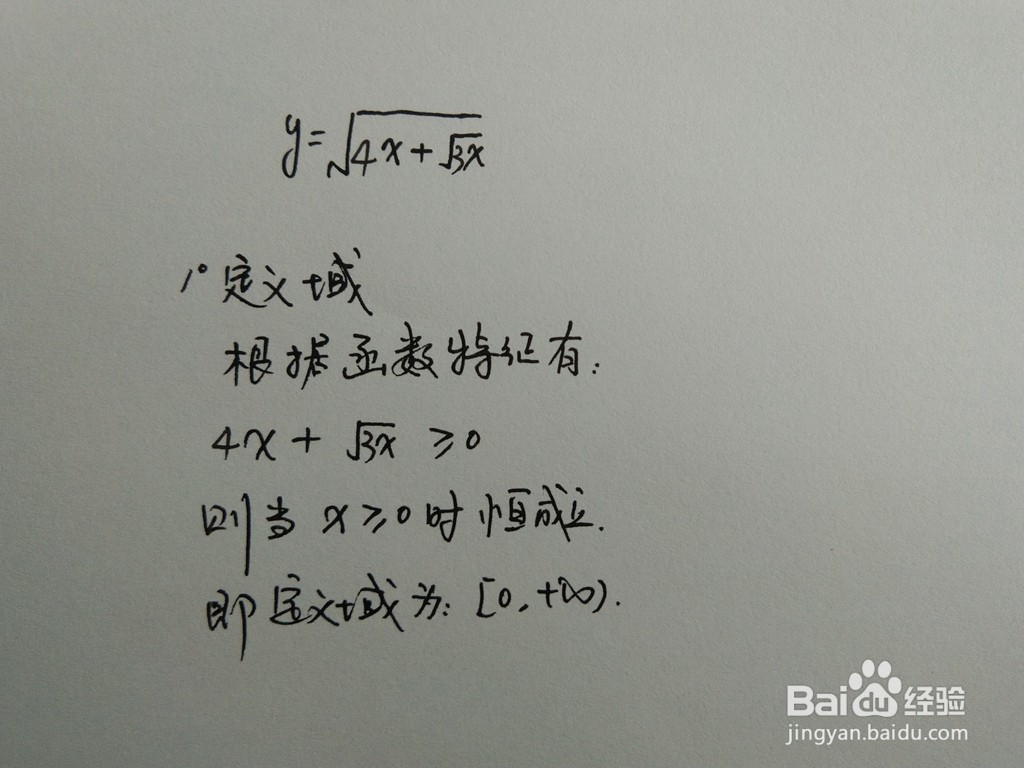 y=√(4x+√3x)
1° 定义域
根据函数特征有:
4x + √3x ≥0
则当 x≥0时恒成立.
即定义域为: [0,+∞).
Bai du 经验
jingyan.baidu.com